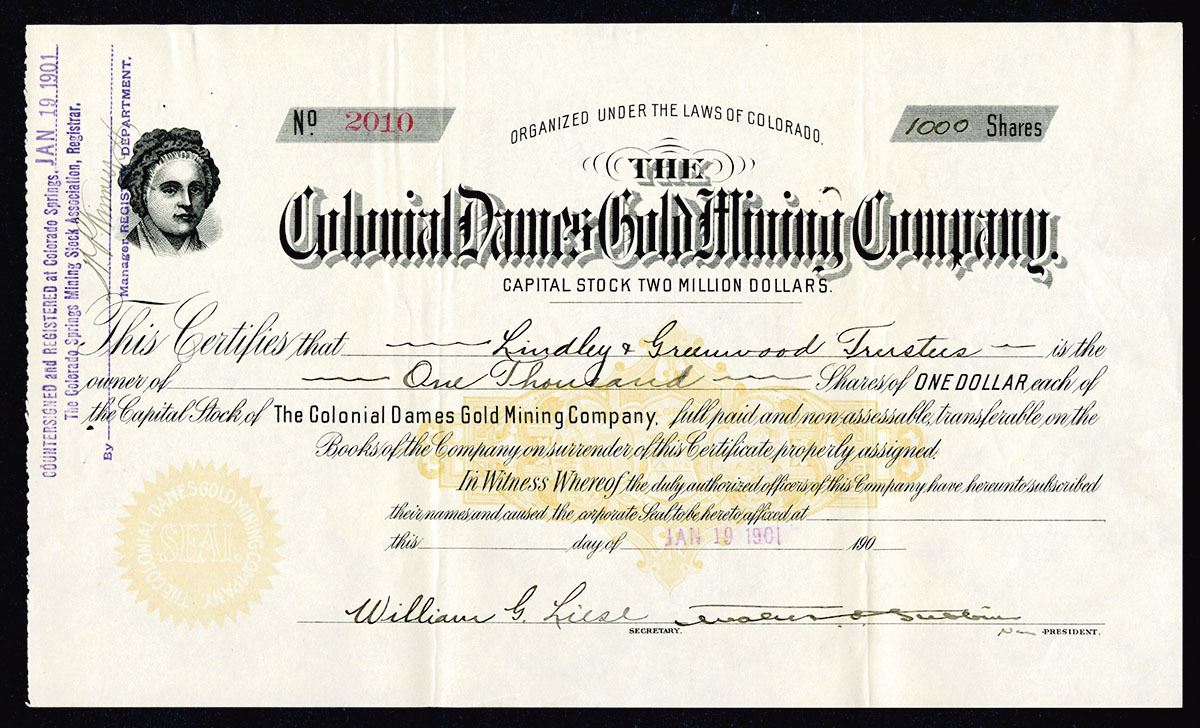 COUNTERSIGNED and REGISTERED at Colorado Springs, JAN 19 1901
The Colorado Springs Mining Stock Association, Registrar.
By
Manager REGISTRY DEPARTMENT.
No 2010
ORGANIZED UNDER THE LAWS OF COLORADO.
1000 Shares
THE
Colonial Dames Gold Mining Company.
CAPITAL STOCK TWO MILLION DOLLARS.
This Certifies that Lindley & Greenwood Trustees is the
owner of One Thousand Shares of ONE DOLLAR each of
the Capital Stock of The Colonial Dames Gold Mining Company, full paid and non-assessable, transferable on the
Books of the Company on surrender of this Certificate properly assigned.
In Witness Whereof the duly authorized officers of this Company have hereunto subscribed
their names and caused the corporate Seal to be hereto affixed at
this day of JAN 19 1901 190
THE COLONIAL DAMES GOLD MINING COMPANY.
SEAL
William G. Liese
SECRETARY. PRESIDENT.